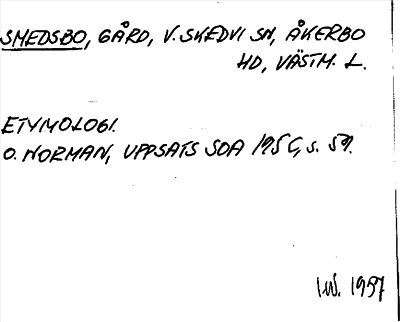 SMEDSBO, GÅRD, V. SKEDVI SN, ÅKERBO
HD, VÄSTM. L.
ETYMOLOGI.
O. NORMAN, UPPSATS SOA 1956, s. 59.
I.W. 1957